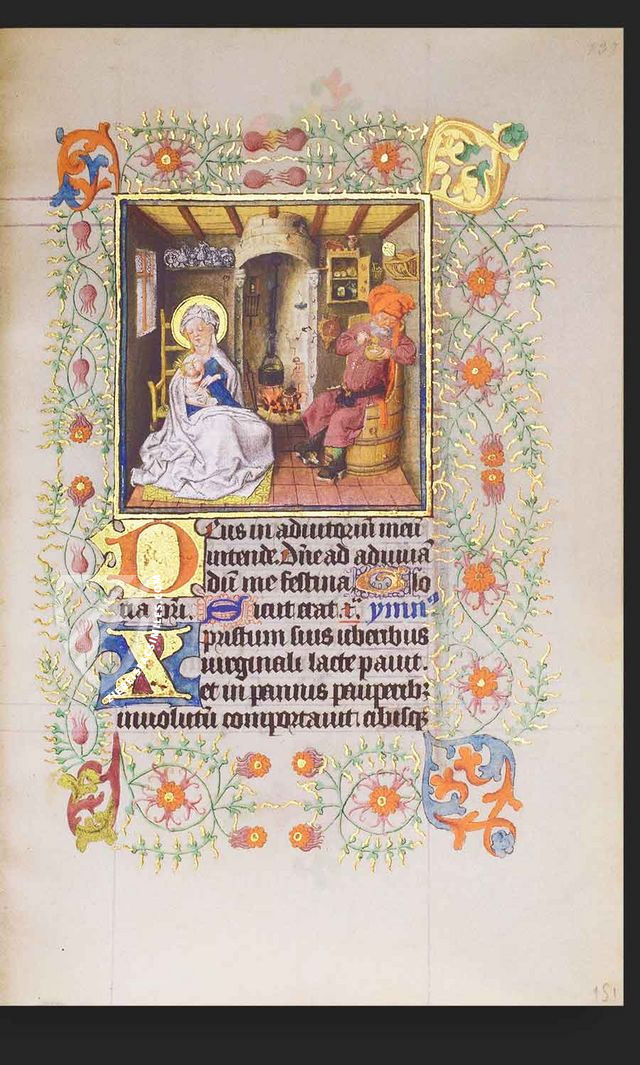 Deus in adiutoriū meū
intende. Dn̄e ad adiuuā
dū me festina Glo
ria pri. Sicut erat. ymnꝰ
Xpristum suis uberibus
uirginali lacte pauit.
et in pannis pauperibꝫ
inuolutū comportauit cibisqꝫ
151